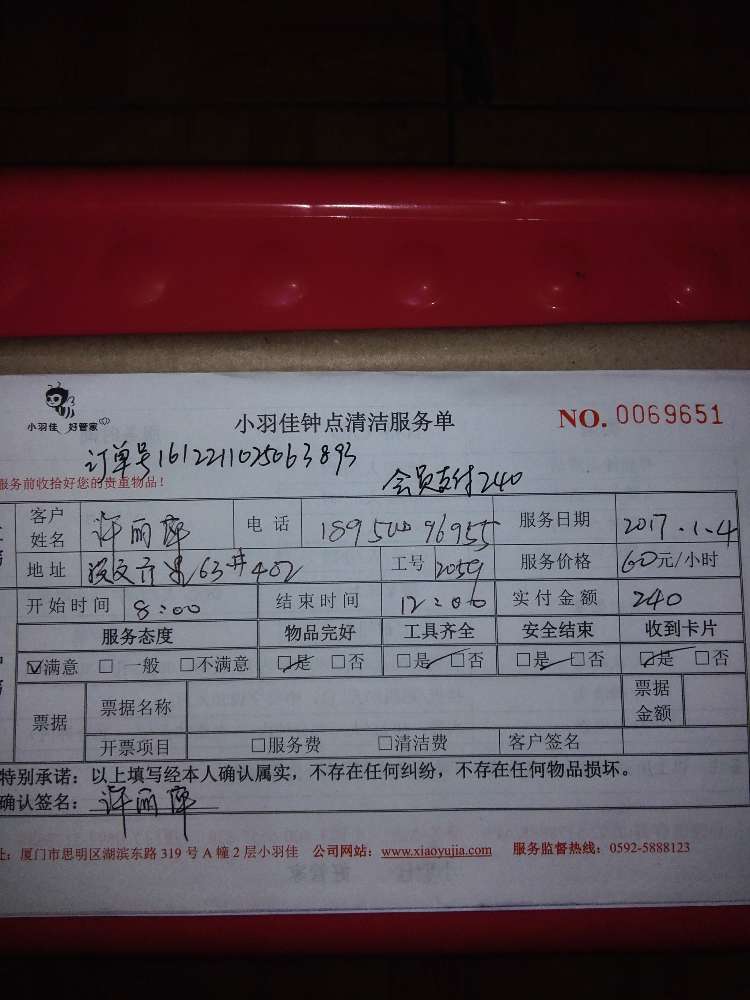 小羽佳 好管家
小羽佳钟点清洁服务单
NO. 0069651
订单号1612211025063893
会员支付240
服务前收拾好您的贵重物品!
客户姓名 许丽 电话 服务日期 2017.1.4
地址 63# 402 工号 2059 服务价格 60元/小时
开始时间 8:00 结束时间 12:00 实付金额 240
服务态度 物品完好 工具齐全 安全结束 收到卡片
☑满意 □一般 □不满意 ☑是 □否 ☑是 □否 ☑是 □否 ☑是 □否
票据 票据名称 票据金额
开票项目 □服务费 □清洁费 客户签名
特别承诺:以上填写经本人确认属实,不存在任何纠纷,不存在任何物品损坏。
确认签名:许丽
址:厦门市思明区湖滨东路 319 号 A 幢 2 层小羽佳 公司网站:www.xiaoyujia.com 服务监督热线:0592-5888123